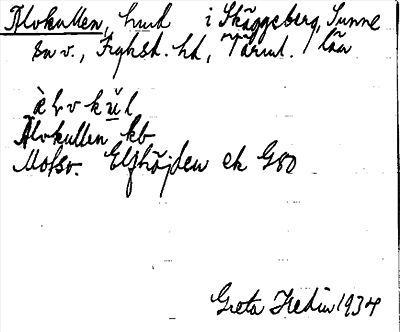 Älvkullen, hmd i Skäggeberg, Sunne
sn v., Fryksd. hd, Värml. län
Älvkullen kb
Motsv. Elfhöjden ek G80
Greta Hedin 1934